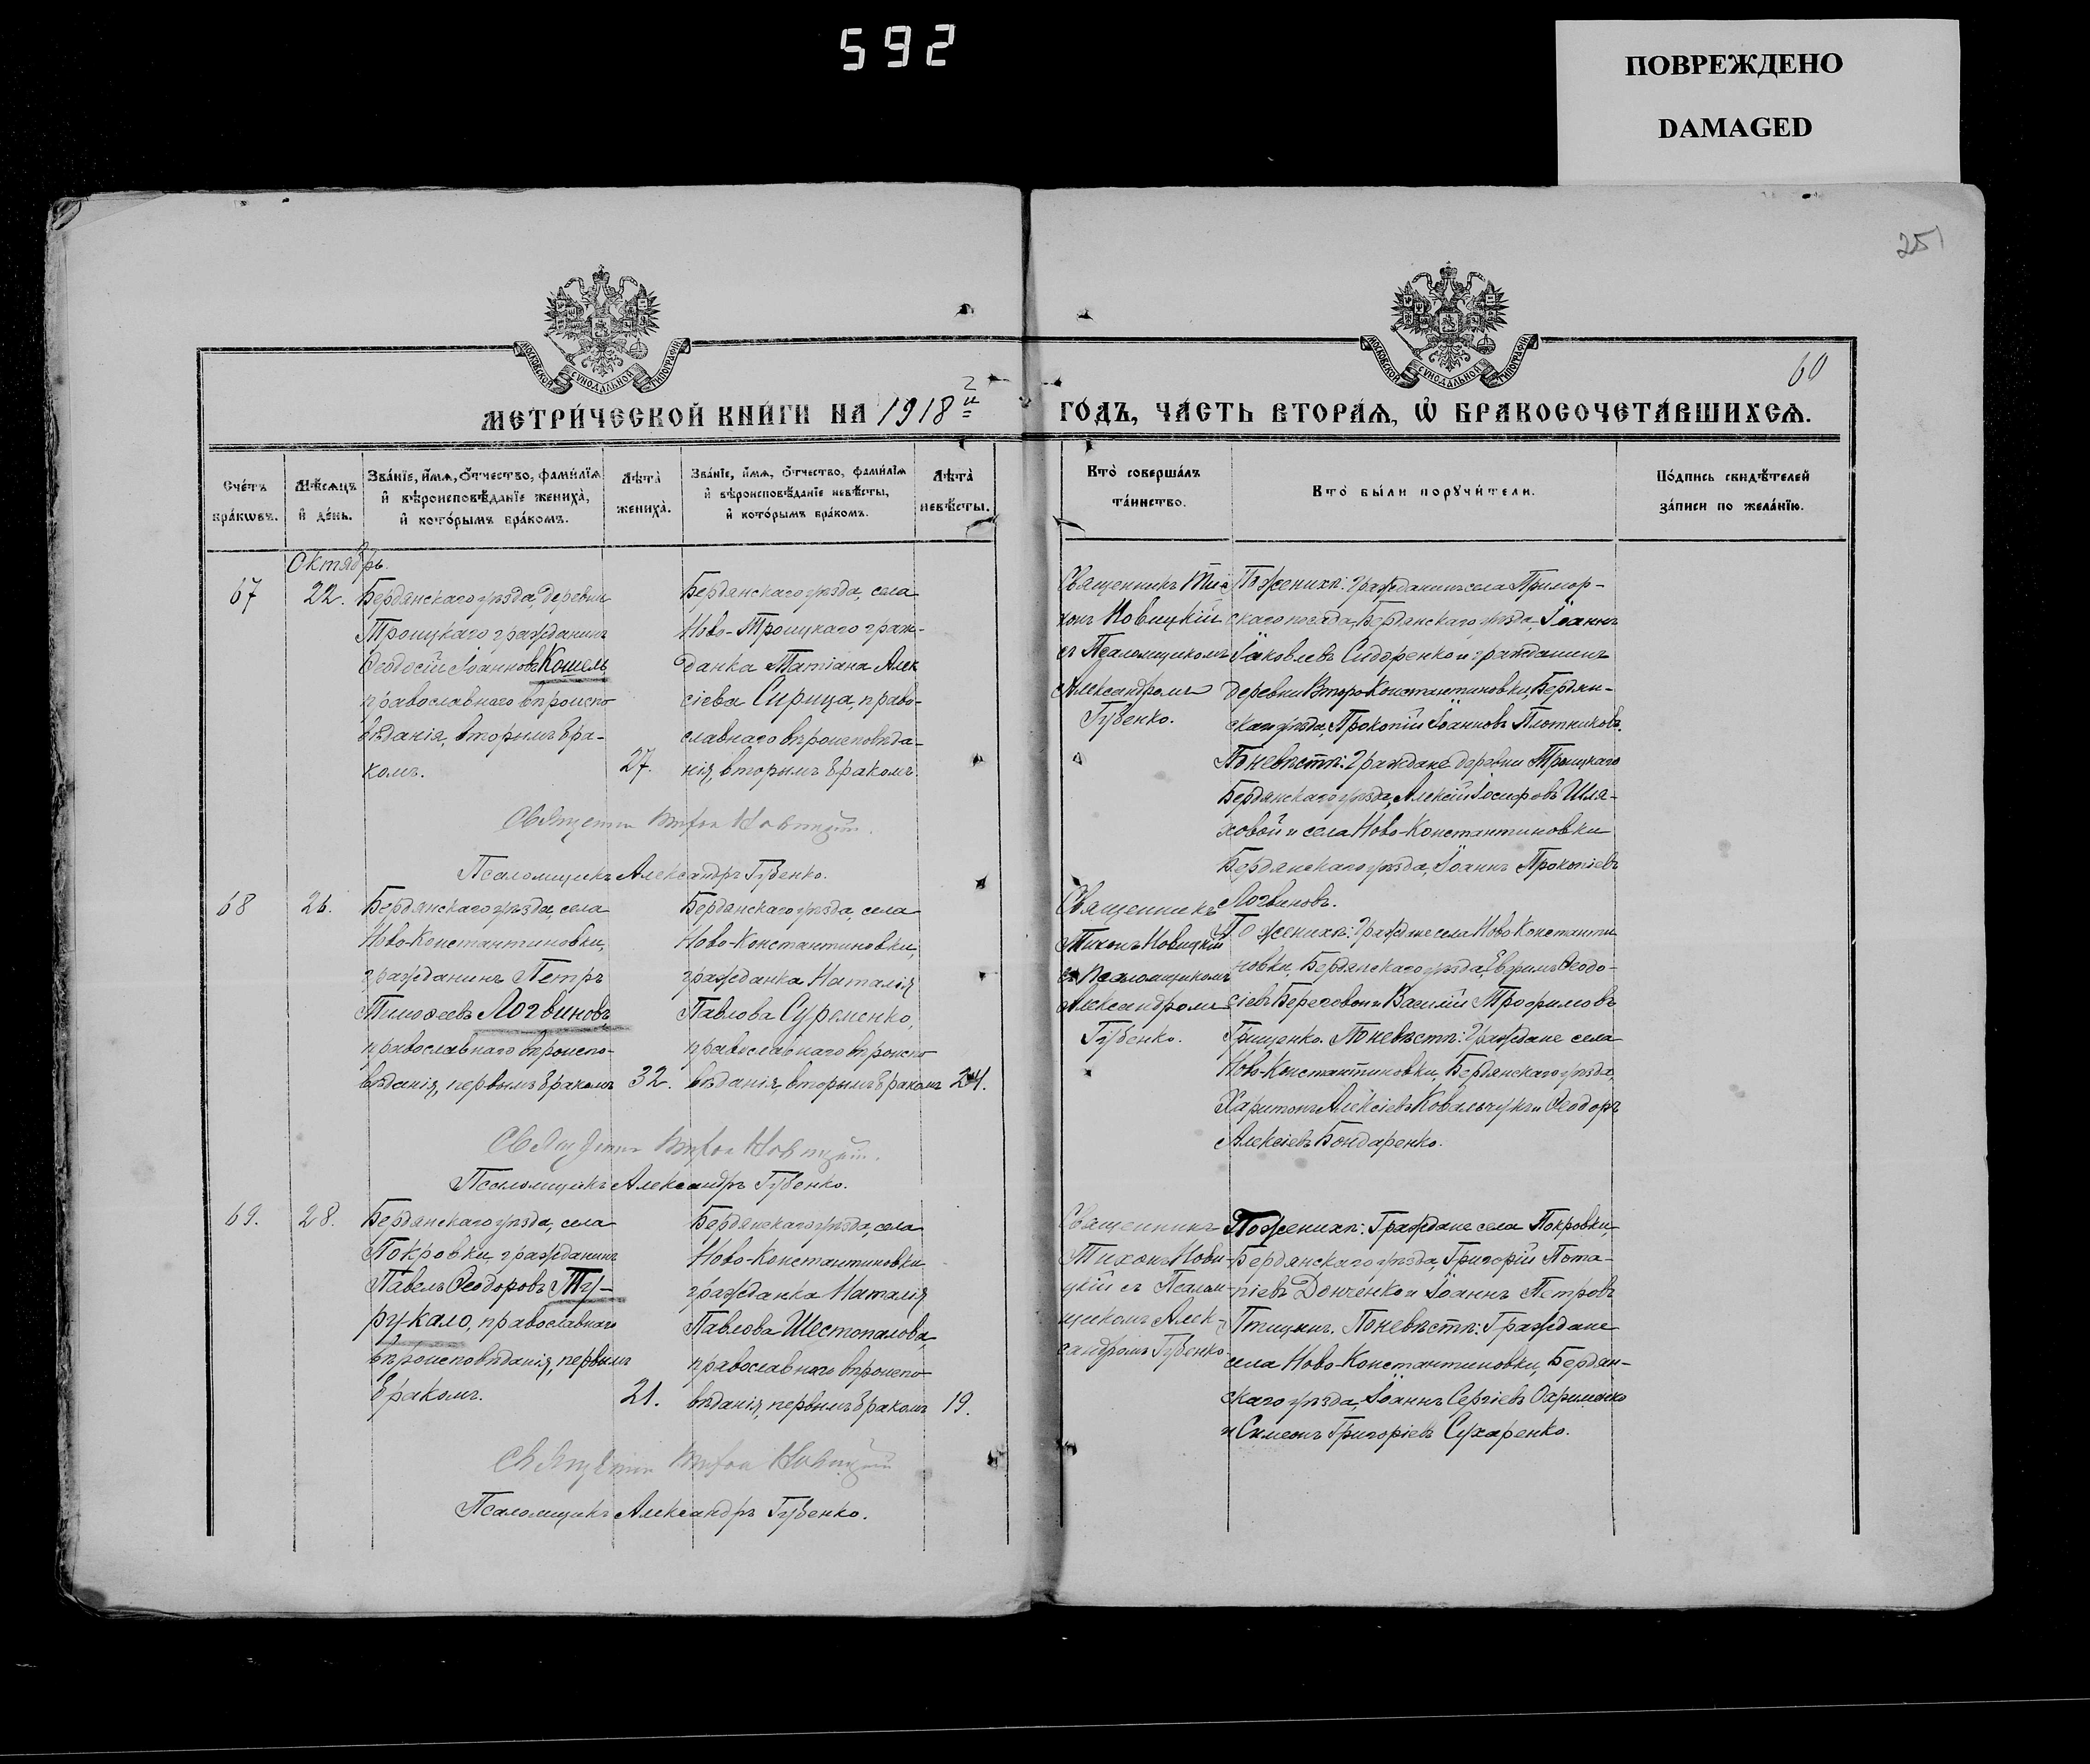 592
ПОВРЕЖДЕНО
DAMAGED
251
60
МОСКОВСКОЙ СѴНОДАЛЬНОЙ ТИПОГРАФІИ
МОСКОВСКОЙ СѴНОДАЛЬНОЙ ТИПОГРАФІИ
МЕТРИ́ЧЕСКОЙ КНИ́ГИ НА 1918 й
ГО́ДЪ, ЧА́СТЬ ВТОРА́Ѧ, Ѡ҆ БРАКОСОЧЕТА́ВШИХСѦ.
Сче́тъ
бра́кωвъ.
Мѣ́сѧцъ
и҆ де́нь.
Зва́нїе, и҆́мѧ, ѻ҆́тчество, фами́лїѧ
и҆ вѣроисповѣ́данїе жениха̀,
и҆ кото́рымъ бра́комъ.
Лѣ́та̀
жениха̀.
Зва́нїе, и҆́мѧ, ѻ҆́тчество, фами́лїѧ
и҆ вѣроисповѣ́данїе невѣ́сты,
и҆ кото́рымъ бра́комъ.
Лѣ́та̀
невѣ́сты.
Кто̀ соверша́лъ
та́инство.
Кто̀ бы́ли порꙋчи́тели.
По́дпись свидѣ́телей
за́писи по жела́нїю.
Октябрь.
67
22.
Бердянскаго уѣзда, деревни
Троицкаго гражданинъ
Ѳеодосій Іоанновъ Кошель
православнаго вѣроиспо
вѣданія, вторымъ бра-
комъ.
27.
Бердянскаго уѣзда, села
Ново-Троицкаго граж-
данка Татіана Алек
сіева Сирица, право-
славнаго вѣроисповѣда-
нія, вторымъ бракомъ.
Священникъ Ти
хонъ Новицкій
съ Псаломщикомъ
Александромъ
Губенко.
По женихѣ: гражданинъ села Примор-
скаго посада, Бердянскаго уѣзда, Іоаннъ
Іаковлевъ Сидоренко и гражданинъ
деревни Второ-Константиновки, Бердян-
скаго уѣзда, Прокопій Іоанновъ Плотниковъ.
По невѣстѣ: Граждане деревни Троицкаго
Бердянскаго уѣзда, Алексій Іосифовъ Шля-
ховой и села Ново-Константиновки
Бердянскаго уѣзда, Іоаннъ Прокопіевъ
Логвиновъ.
Священникъ Тихон Новицкий.
Псаломщикъ Александръ Губенко.
68
26.
Бердянскаго уѣзда, села
Ново-Константиновки,
гражданинъ Петръ
Тимофеевъ Логвиновъ,
православнаго вѣроиспо-
вѣданія, первымъ бракомъ
32.
Бердянскаго уѣзда, села
Ново-Константиновки,
гражданка Наталія
Павлова Суременко,
православнаго вѣроиспо
вѣданія, вторымъ бракомъ
24.
Священникъ
Тихонъ Новицкій
съ Псаломщикомъ
Александромъ
Губенко.
По женихѣ: Граждане села Ново Константи
новки, Бердянскаго уѣзда, Ефимъ Ѳеодо-
сіевъ Береговой и Василій Трофимовъ
Грищенко. По невѣстѣ: Граждане села
Ново-Константиновки, Бердянскаго уѣзда,
Харитонъ Алексіевъ Ковальчукъ и Ѳеодоръ
Алексіевъ Бондаренко.
Священникъ Тихон Новицкий.
Псаломщикъ Александръ Губенко.
69.
28.
Бердянскаго уѣзда, села
Покровки, гражданинъ
Павелъ Ѳеодоровъ Ту-
рукало, православнаго
вѣроисповѣданія, первымъ
бракомъ.
21.
Бердянскаго уѣзда, села
Ново-Константиновки
гражданка Наталія
Павлова Шестопалова,
православнаго вѣроиспо
вѣданія, первымъ бракомъ
19.
Священникъ
Тихонъ Нови-
цкій съ Псалом-
щикомъ Алек-
сандромъ Губенко.
По женихѣ: Граждане села Покровки,
Бердянскаго уѣзда, Григорій Пота-
піевъ Донченко и Іоаннъ Петровъ
Птицынъ. По невѣстѣ: Граждане
села Ново-Константиновки, Бердян-
скаго уѣзда, Іоаннъ Сергіевъ Охрименко
и Симеонъ Григоріевъ Сухаренко.
Священникъ Тихон Новицкий
Псаломщикъ Александръ Губенко.